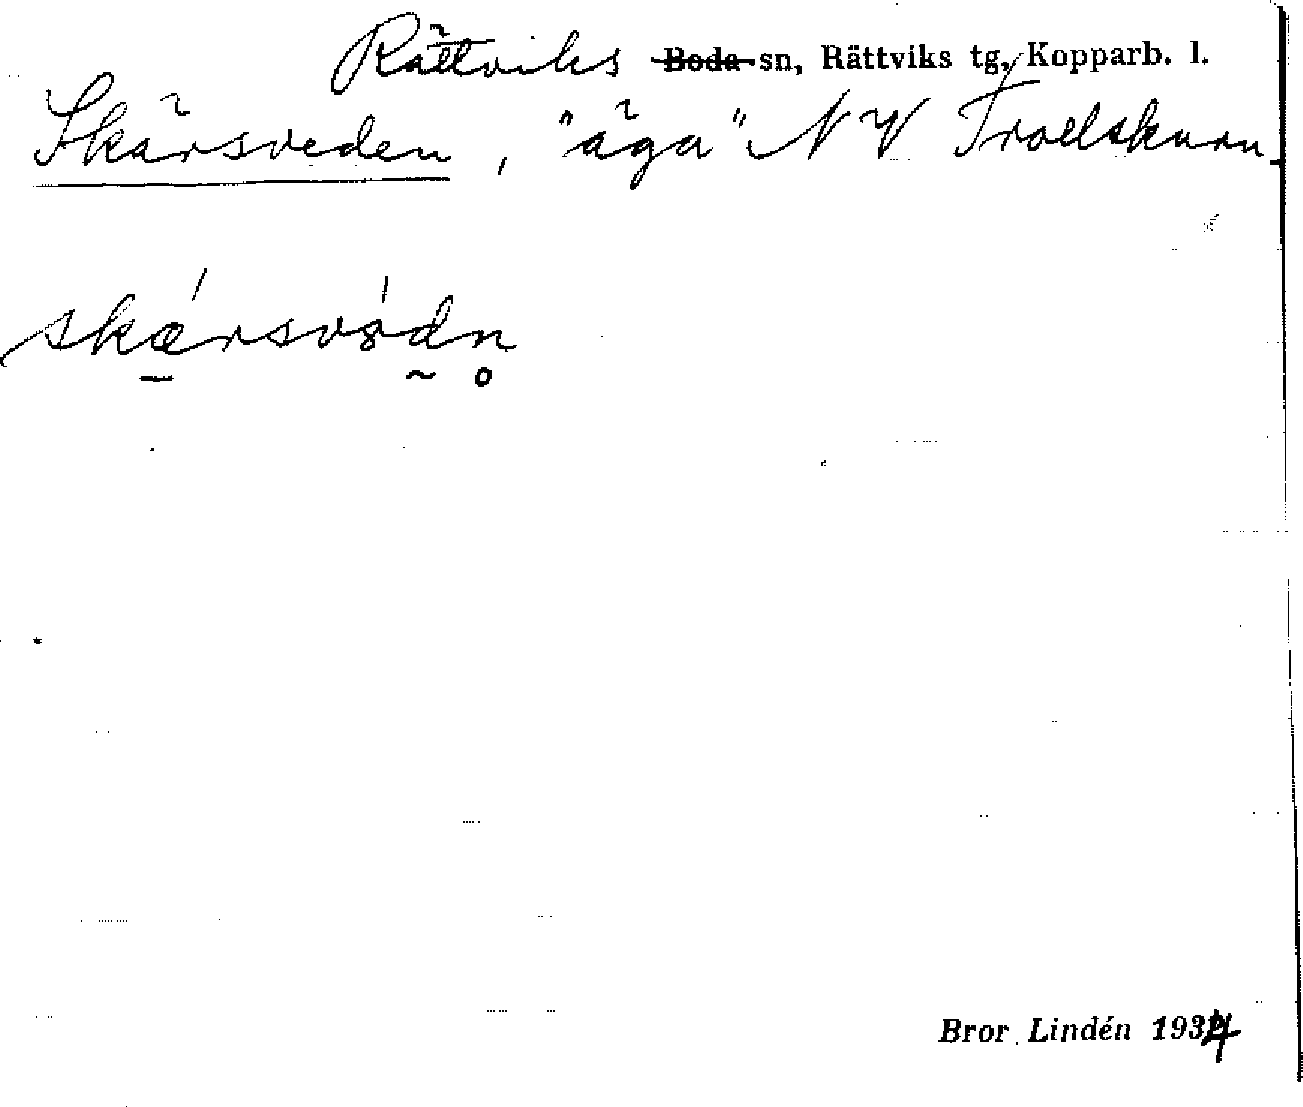 Rättviks Boda sn, Rättviks tg, Kopparb. l.
Skärsveden, "äga" NV Trollskurn
skǽrsvødn
Bror Lindén 1934